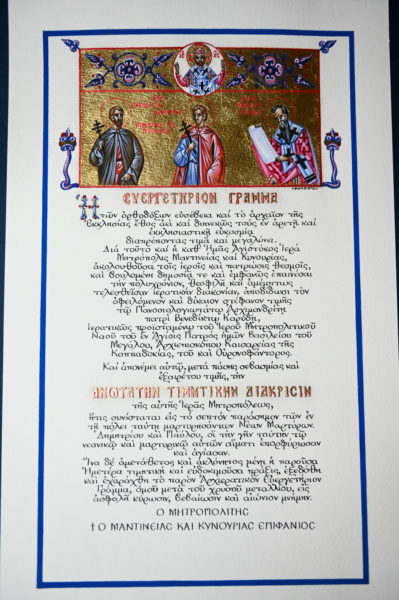 ΕΥΕΡΓΕΤΗΡΙΟΝ ΓΡΑΜΜΑ
Ἡ τῶν ὀρθοδόξων εὐσέβεια καὶ τὸ ἀρχαῖον τῆς
Ἐκκλησίας ἔθος ἀεὶ καὶ διηνεκῶς τοὺς ἐν ἀρετῇ καὶ
ἐκκλησιαστικῇ εὐκοσμίᾳ
διαπρέποντας τιμᾷ καὶ μεγαλύνει.
Διὰ τοῦτο καὶ ἡ καθ' Ἡμᾶς Ἁγιωτόκος Ἱερὰ
Μητρόπολις Μαντινείας καὶ Κυνουρίας,
ἀκολουθοῦσα τοῖς ἱεροῖς καὶ πατρῴοις θεσμοῖς,
καὶ βουλομένη δημοσίᾳ τε καὶ ἐμφανῶς ἐπαινέσαι
τὴν πολυχρόνιον, θεοφιλῆ καὶ ἀμέμπτως
τελεσθεῖσαν ἱερατικὴν διακονίαν, ἀποδίδωσι τὸν
ὀφειλόμενον καὶ δίκαιον στέφανον τιμῆς
τῷ Πανοσιολογιωτάτῳ Ἀρχιμανδρίτῃ
πατρὶ Βενεδίκτῳ
ἱερατικῶς προϊσταμένῳ τοῦ Ἱεροῦ Μητροπολιτικοῦ
Ναοῦ τοῦ ἐν Ἁγίοις Πατρὸς ἡμῶν Βασιλείου τοῦ
Μεγάλου, Ἀρχιεπισκόπου Καισαρείας τῆς
Καππαδοκίας, τοῦ καὶ Οὐρανοφάντορος.
Καὶ ἀπονέμει αὐτῷ, μετὰ πάσης σεβασμίας καὶ
ἐξαιρέτου τιμῆς, τὴν
ΑΝΩΤΑΤΗΝ ΤΙΜΗΤΙΚΗΝ ΔΙΑΚΡΙΣΙΝ
τῆς αὐτῆς Ἱερᾶς Μητροπόλεως,
ἥτις συνίσταται εἰς τὸ σεπτὸν παράσημον τῶν ἐν
τῇ πόλει ταύτῃ μαρτυρησάντων Νέων Μαρτύρων
Δημητρίου καὶ Παύλου, οἳ τὴν γῆν ταύτην τῷ
νεανικῷ καὶ μαρτυρικῷ αὐτῶν αἵματι ἐπορφύρωσαν
καὶ ἁγίασαν.
Ἵνα δὲ ἀμετάθετος καὶ ἀκλόνητος μένῃ ἡ παροῦσα
Ἡμετέρα τιμητικὴ καὶ εὐδοκιμοῦσα πρᾶξις, ἐξεδόθη
καὶ ἐχαράχθη τὸ παρὸν Ἀρχιερατικὸν Εὐεργετήριον
Γράμμα, ὁμοῦ μετὰ τοῦ χρυσοῦ μεταλλίου, εἰς
ἀσφαλῆ κύρωσιν, βεβαίωσιν καὶ αἰώνιον μνήμην.
Ο ΜΗΤΡΟΠΟΛΙΤΗΣ
† Ο ΜΑΝΤΙΝΕΙΑΣ ΚΑΙ ΚΥΝΟΥΡΙΑΣ ΕΠΙΦΑΝΙΟΣ